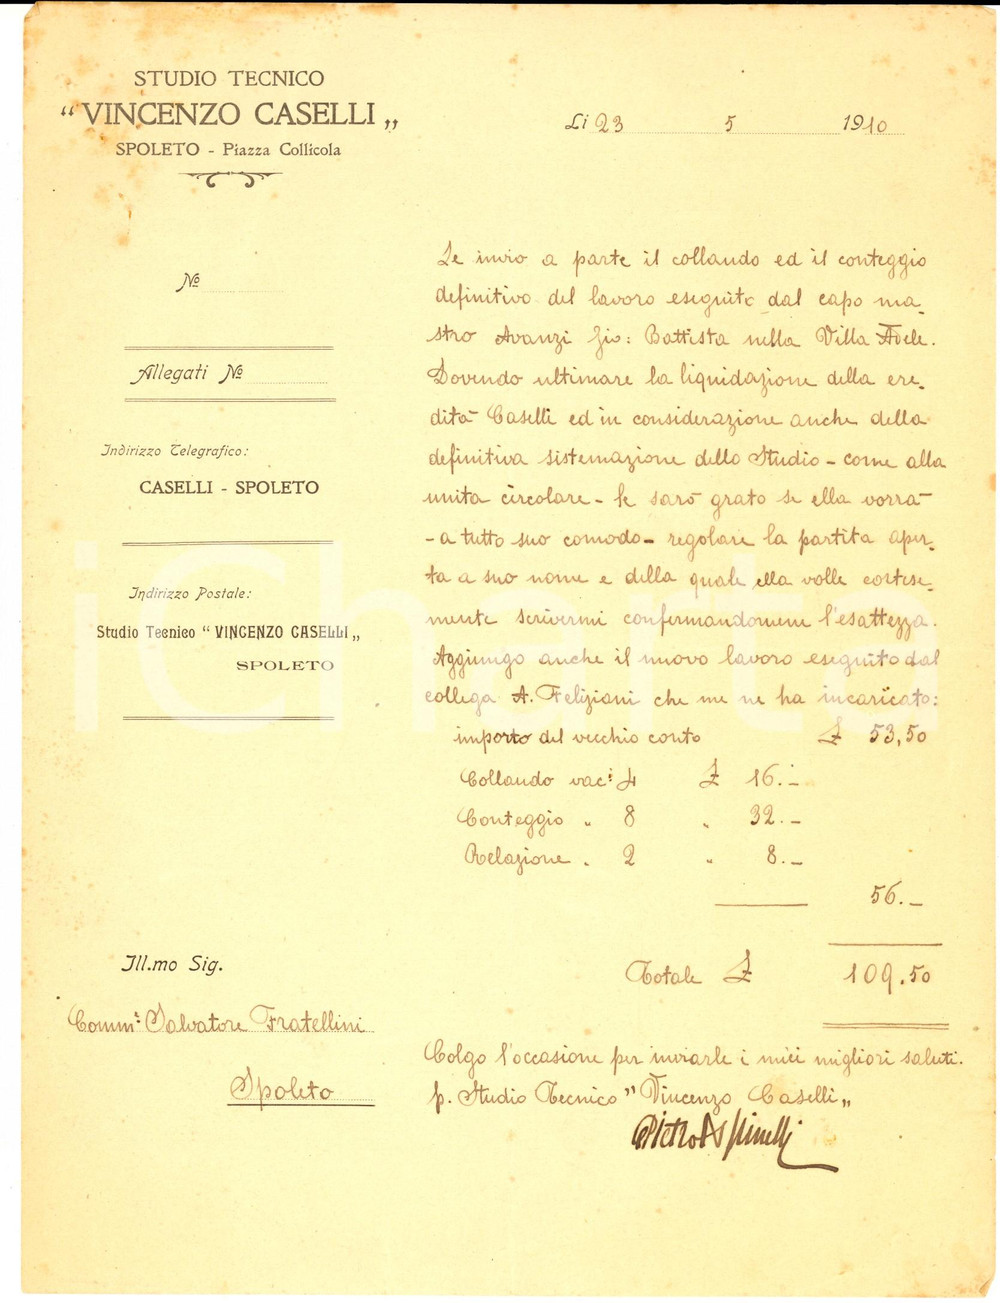 STUDIO TECNICO
“VINCENZO CASELLI„
SPOLETO - Piazza Collicola
Li 23 5 1910
Nº
Allegati Nº
Indirizzo Telegrafico:
CASELLI - SPOLETO
Indirizzo Postale:
Studio Tecnico “VINCENZO CASELLI„
SPOLETO
Ill.mo Sig.
Comm. Salvatore Fratellini
Spoleto
Le invio a parte il collaudo ed il conteggio
definitivo del lavoro eseguito dal capo ma-
stro Avanzi Gio: Battista nella Villa Adele.
Dovendo ultimare la liquidazione della ere-
dità Caselli ed in considerazione anche della
definitiva sistemazione dello Studio - come alla
unita circolare - le sarò grato se ella vorrà -
- a tutto suo comodo - regolare la partita aper-
ta a suo nome e della quale ella volle cortese-
mente scrivermi confermandomene l'esattezza.
Aggiungo anche il nuovo lavoro eseguito dal
collega A. Feliziani che me ne ha incaricato:
importo del vecchio conto £ 53,50
Collaudo vac: 4 £ 16.-
Conteggio " 8 " 32.-
Relazione " 2 " 8.-
56.-
Totale £ 109.50
Colgo l'occasione per inviarle i miei migliori saluti.
p. Studio Tecnico "Vincenzo Caselli„
iCharta